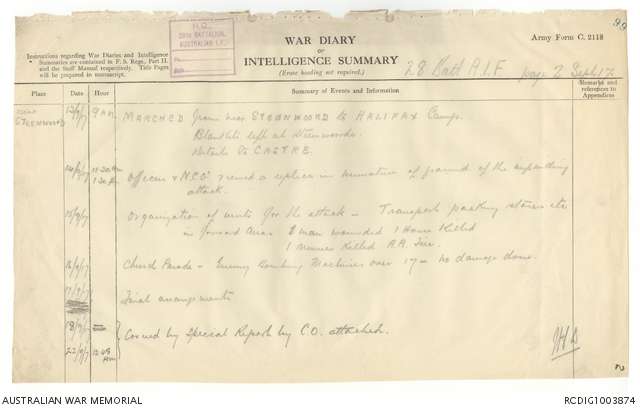 H.Q.
28TH BATTALION,
AUSTRALIAN
WAR DIARY
or
INTELLIGENCE SUMMARY
(Erase heading not required.)
Army Form C. 2118
Instructions regarding War Diaries and Intelligence
Summaries are contained in F. S. Regs., Part II.
and the Staff Manual respectively. Title Pages
will be prepared in manuscript.
28 Batt A.I.F page 2 Sept 17
Place Date Hour Summary of Events and Information Remarks and
references to
Appendices
near
STEENWOORD 13/9/17 9 am MARCHED from near STEENWOORD to HALIFAX Camp.
Blankets left at Steenwoorde.
Details to CAESTRE.
14/9/17 Officers & N.C.O's viewed a replica in miniature of ground of the impending
attack.
15/9/17 Organization of units for the attack - Transport packing stores etc
in forward area 1 man wounded 1 Horse Killed
1 killed A.A. Fire.
16/9/17 Church Parade - Enemy Bombing Machines over 17 - no damage done.
17/9/17 Final arrangements
18/9/17
Covered by Special Report by C.O. attached.
22/9/17
AUSTRALIAN WAR MEMORIAL
RCDIG1003874